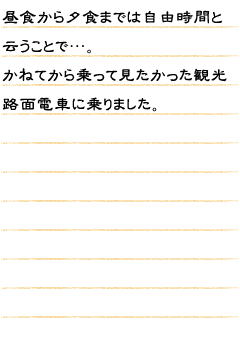 昼食から夕食までは自由時間と
云うことで…。
かねてから乗って見たかった観光
路面電車に乗りました。